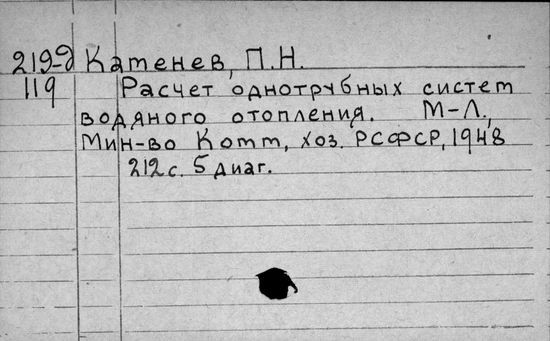 219-д Катенев, П.Н.
119 Расчет однотрубных систем
водяного отопления. М-Л.,
Мин-во Комм, хоз. РСФСР, 1948
212 с. 5 диаг.